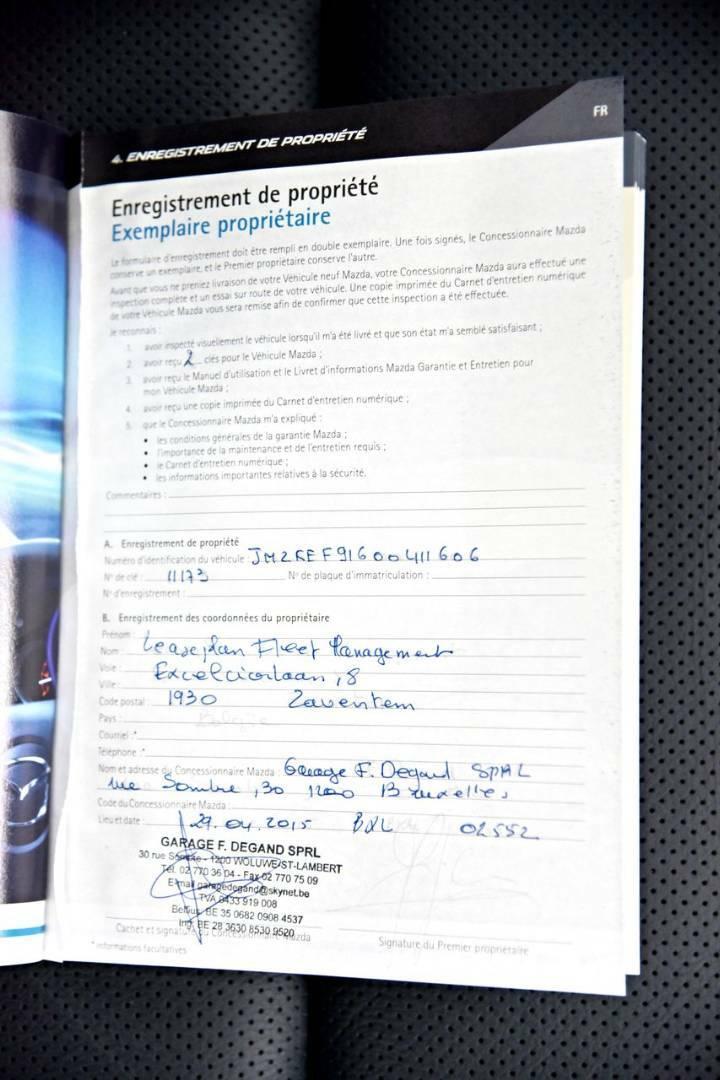 FR
4. ENREGISTREMENT DE PROPRIÉTÉ
Enregistrement de propriété
Exemplaire propriétaire
Le formulaire d'enregistrement doit être rempli en double exemplaire. Une fois signés, le Concessionnaire Mazda
conserve un exemplaire, et le Premier propriétaire conserve l'autre.
Avant que vous ne preniez livraison de votre Véhicule neuf Mazda, votre Concessionnaire Mazda aura effectué une
inspection complète et un essai sur route de votre véhicule. Une copie imprimée du Carnet d'entretien numérique
de votre Véhicule Mazda vous sera remise afin de confirmer que cette inspection a été effectuée.
Je reconnais :
1. avoir inspecté visuellement le véhicule lorsqu'il m'a été livré et que son état m'a semblé satisfaisant ;
2. avoir reçu 2 clés pour le Véhicule Mazda ;
3. avoir reçu le Manuel d'utilisation et le Livret d'informations Mazda Garantie et Entretien pour
mon Véhicule Mazda ;
4. avoir reçu une copie imprimée du Carnet d'entretien numérique ;
5. que le Concessionnaire Mazda m'a expliqué :
• les conditions générales de la garantie Mazda ;
• l'importance de la maintenance et de l'entretien requis ;
• le Carnet d'entretien numérique ;
• les informations importantes relatives à la sécurité.
Commentaires :
A. Enregistrement de propriété
Numéro d'identification du véhicule : JMZKEF91600411606
N° de clé : 11173 N° de plaque d'immatriculation :
N° d'enregistrement :
B. Enregistrement des coordonnées du propriétaire
Prénom :
Nom : Leaseplan Fleet Management
Voie : Excelciorlaan, 8
Ville :
Code postal : 1930 Zaventem
Pays :
Courriel :*
Téléphone :*
Nom et adresse du Concessionnaire Mazda : Garage F. Degand SPRL
rue Sombre, 30 1200 Bruxelles
Code du Concessionnaire Mazda :
Lieu et date : 29.04.2015 BXL 02552
GARAGE F. DEGAND SPRL
30 rue Sombre - 1200 WOLUWE/ST-LAMBERT
Tél. 02 770 36 04 - Fax 02 770 75 09
E-mail garagedegand@skynet.be
TVA 0433 919 008
Belfius BE 35 0682 0908 4537
Ing BE 28 3630 8530 9520
Cachet et signature du Concessionnaire Mazda
Signature du Premier propriétaire
* informations facultatives